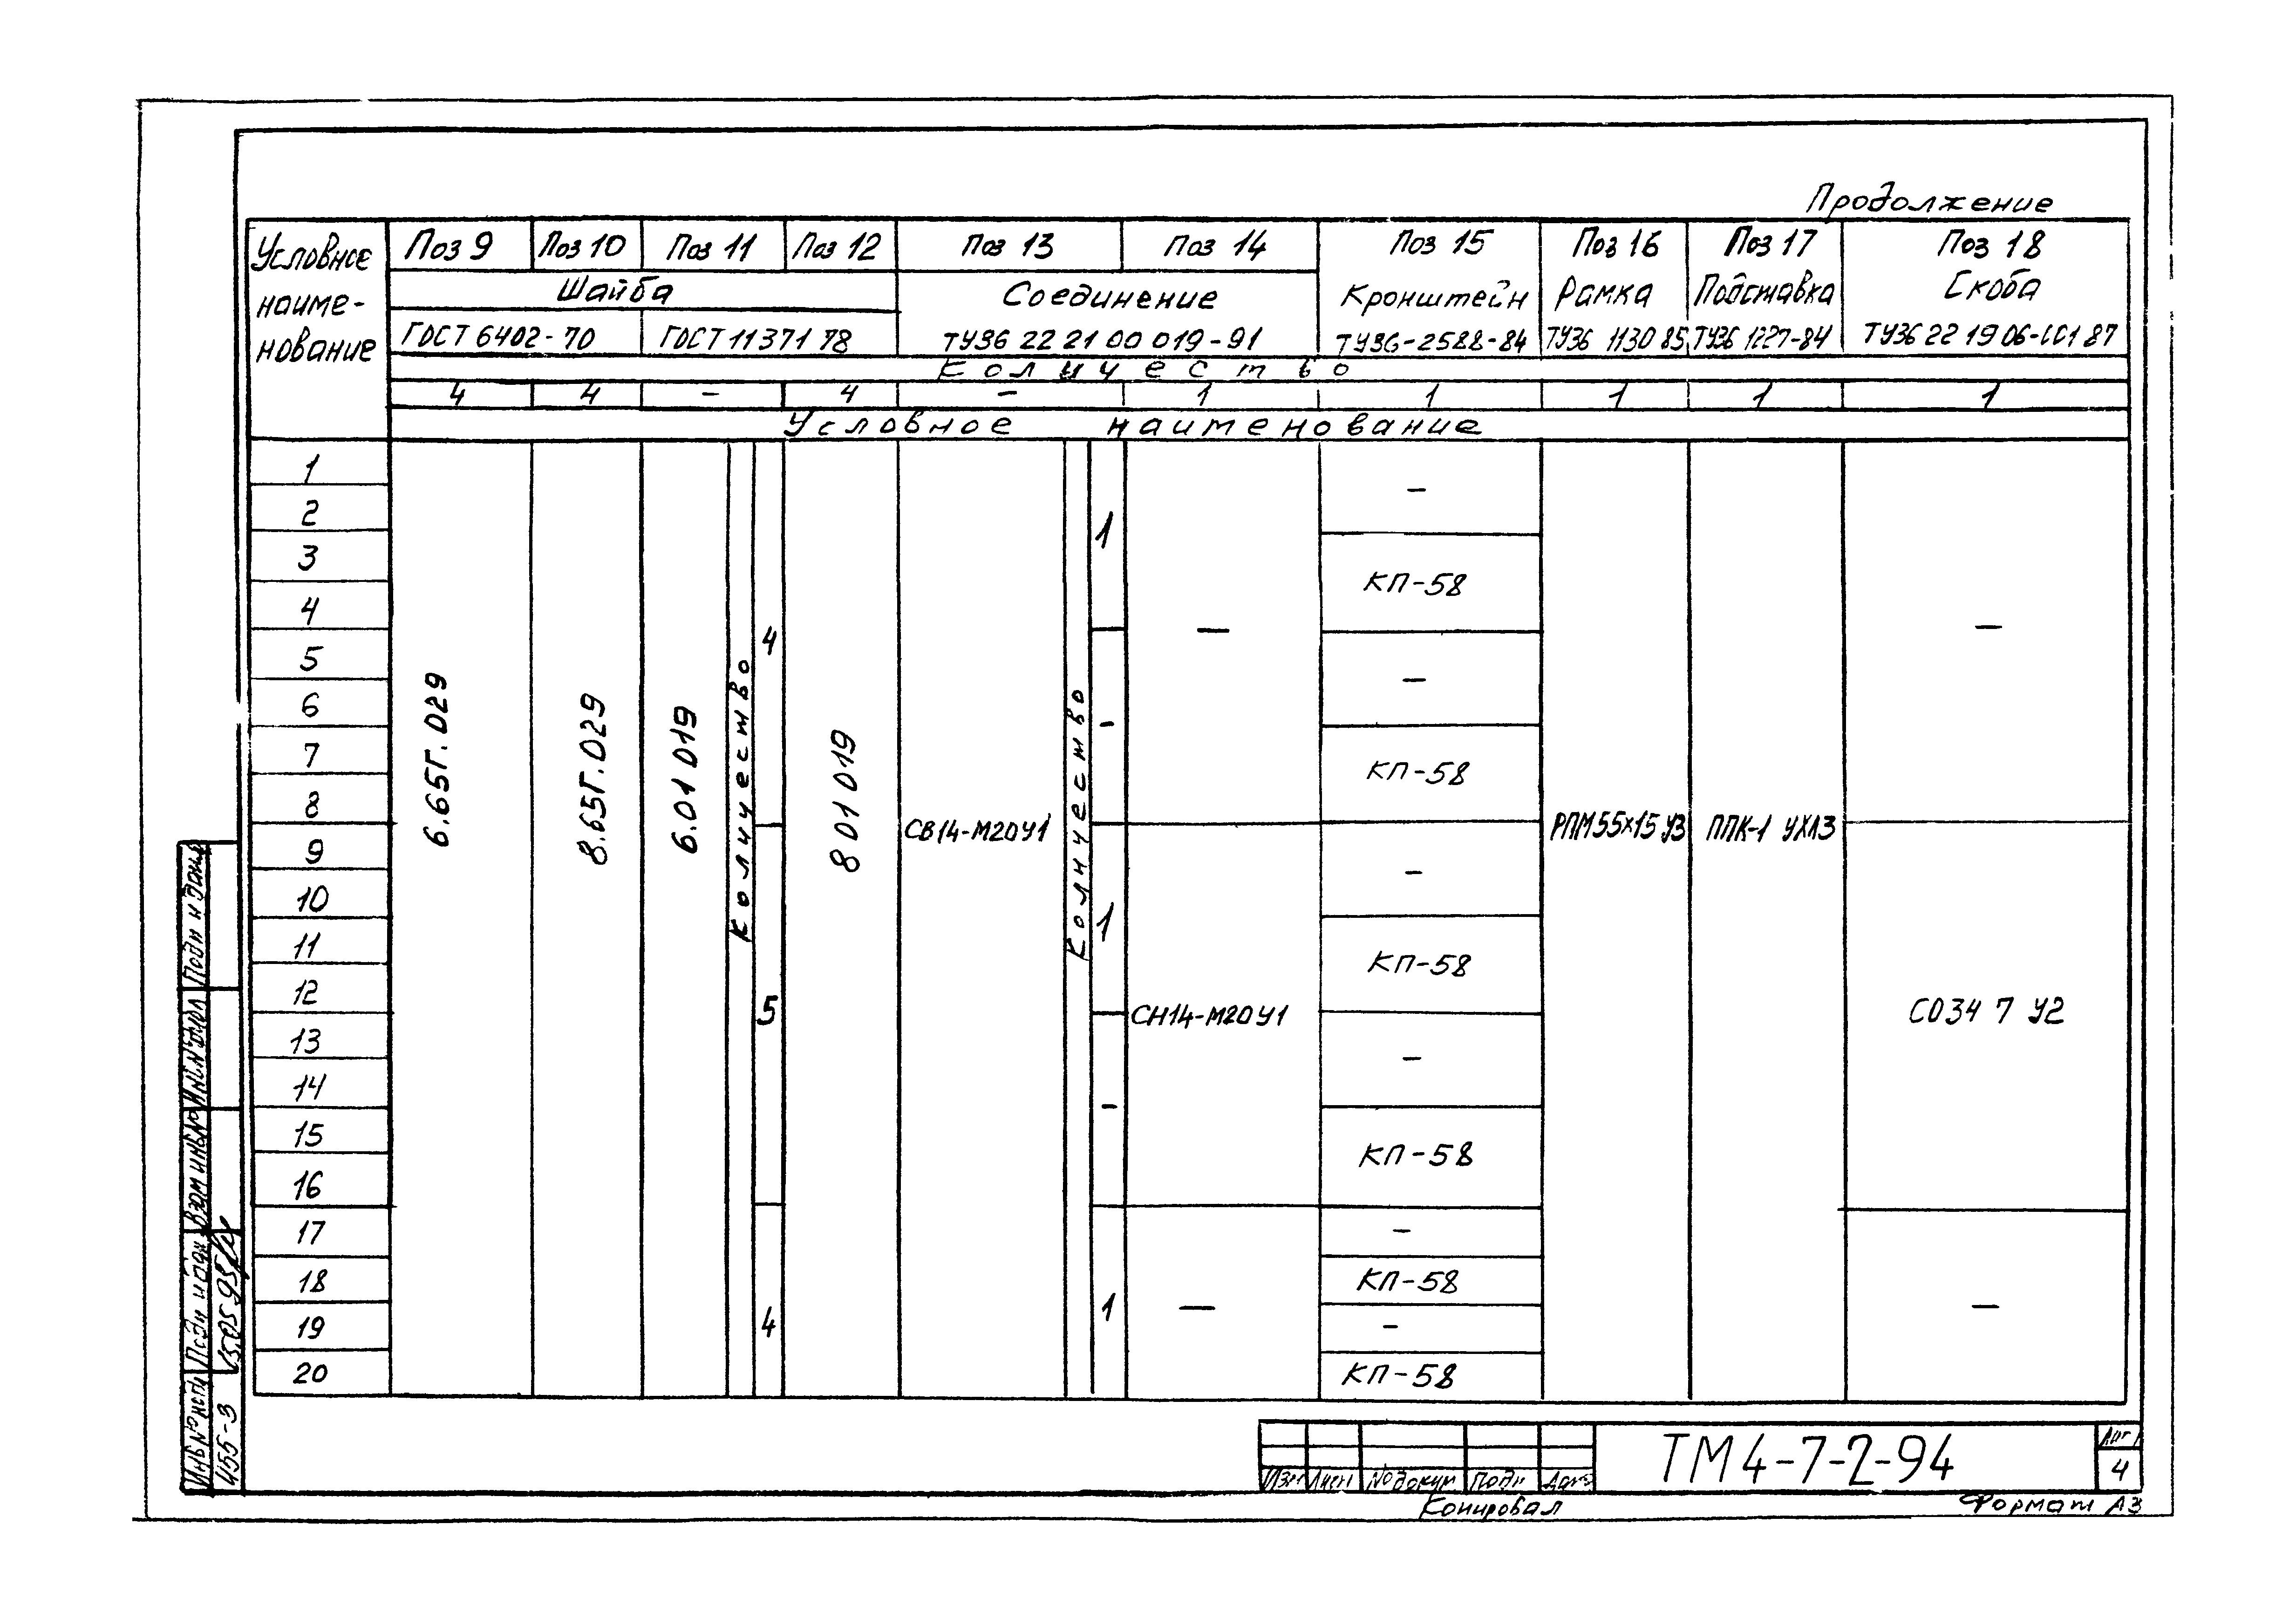 Продолжение
Условное наиме- нование
Поз 9 Поз 10 Поз 11 Поз 12 Поз 13 Поз 14 Поз 15 Поз 16 Поз 17 Поз 18
Шайба Соединение Кронштейн Рамка Подставка Скоба
ГОСТ 6402-70 ГОСТ 11371 78 ТУ36 22 21 00 019-91 ТУ36-2588-84 ТУ36 1130 85 ТУ36 1227-84 ТУ36 22 19 06-001 87
Количество
4 4 - 4 - 1 1 1 1 1
Условное наименование
1
2
3
4
5
6
7
8
9
10
11
12
13
14
15
16
17
18
19
20
6.65Г.029
8.65Г.029
6.01 019
Количество
4
5
4
8 01 019
СВ14-М20У1
Количество
1
-
1
-
1
-
СН14-М20У1
-
-
КП-58
-
КП-58
-
КП-58
-
КП-58
-
КП-58
-
КП-58
РПМ55х15 У3
ППК-1 УХЛ3
-
СО34 7 У2
-
Подп и дата
Инв N дубл
Взам инв No
Подп и дата
15.05.95
Инв No подл
455-3
Изм Лист No докум Подп Дата
ТМ4-7-2-94
Лист
4
Копировал
Формат А3